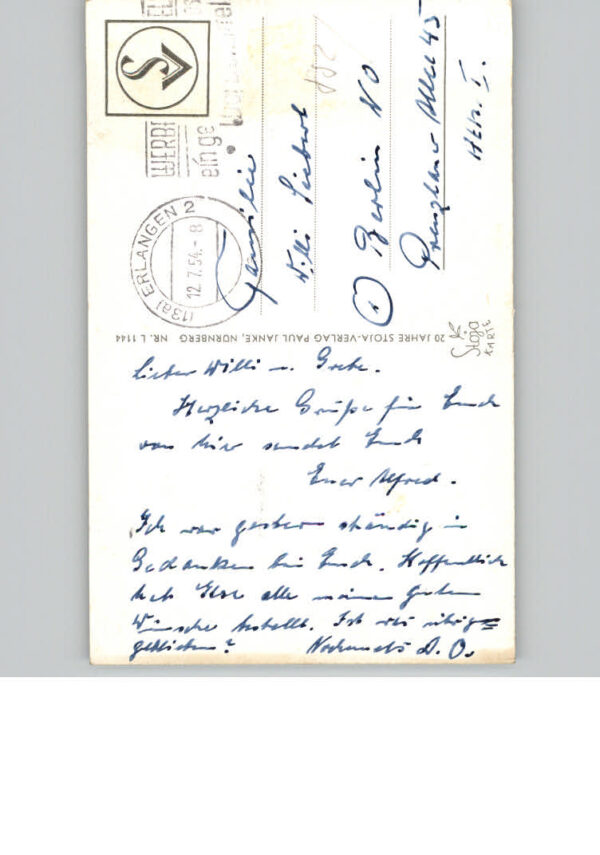 Lieber Willi u. Grete.
Herzliche Grüße für Euch
von hier sendet Euch
Euer Alfred.
Ich war gestern ständig in
Gedanken bei Euch. Hoffentlich
hat Else alle meine guten
Wünsche bestellt. Ist was übrig
geblieben? Nochmals D. O.
20 JAHRE STOJA-VERLAG PAUL JANKE, NÜRNBERG NR. L 1144
Stoja
KARTE
(13a) ERLANGEN 2
12.7.54.-8
WERBE
ein ge
SV
Familie
Willi Siebert
Berlin NO
Prenzlauer Allee 45